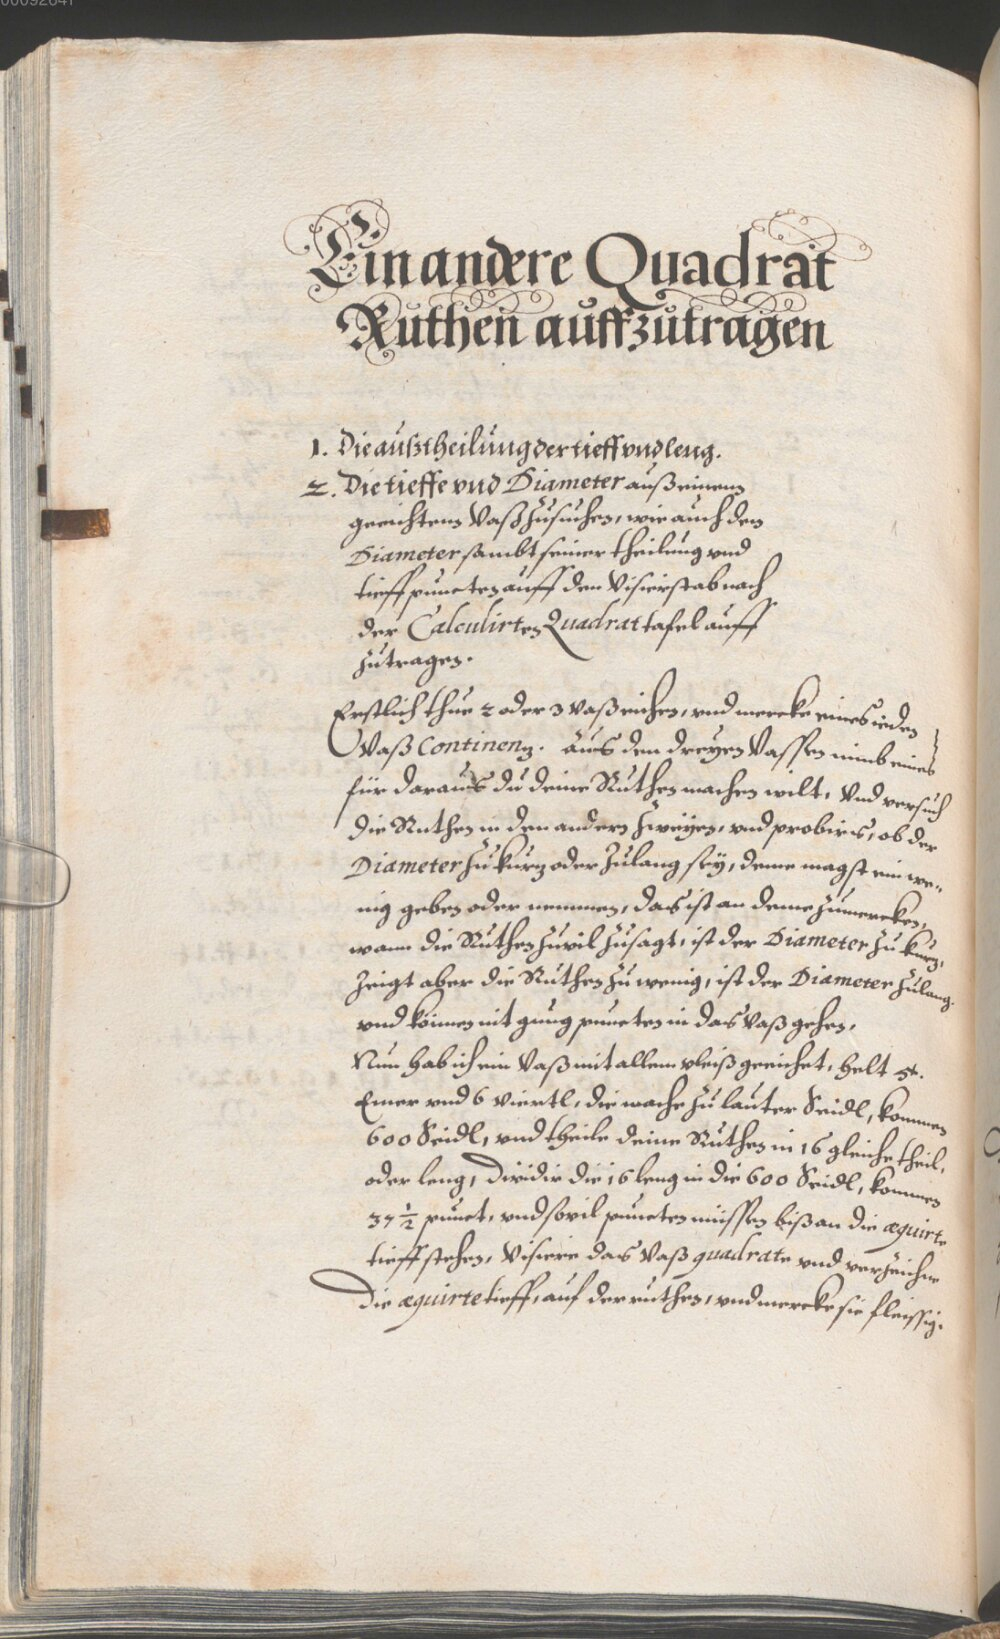 00092841
Ein andere Quadrat
Ruthen auffzutragen
1. Die außtheilung der tieff und leng.
2. Die tieffe und Diameter auß einem
geeichtem Vaß zusuchen, wie auch den
Diameter sambt seiner theilung und
tieff puncten auff den Visierstab nach
der Calculirten Quadrat tafel auff
zutragen.
Erstlich thue 2 oder 3 Vaß eichen, und mercke eines ieden
Vaß Continenz. Aus den dreyen Vassen nimb eines
für daraus du deine Ruthen machen wilt, Und versuch
die Ruthen in den andern zweyen, und probiers, ob der
Diameter zu kurz oder zulang sey, deme magst ein we-
nig geben oder nemmen, das ist an deme zumercken,
wann die Ruthen zuvil zusagt, ist der Diameter zu kurz,
Zeigt aber die Ruthen zu wenig, ist der Diameter zulang.
und können nit gnug puncten in das Vaß gehen.
Nun hab ich ein Vaß mit allem vleiß geeichet, helt
Emer und 6 viertl, die mache zu lauter Seidl, kommen
600 Seidl, und theile deine Ruthen in 16 gleiche theil,
oder leng, Dividir die 16 leng in die 600 Seidl, kommen
37 1/2 punct, und sovil puncten müssen biß an die æquirte
tieff stehen, Visiere das Vaß quadrate und verzeichne
die æquirte tieff, auf der ruthen, und mercke sie fleissig.